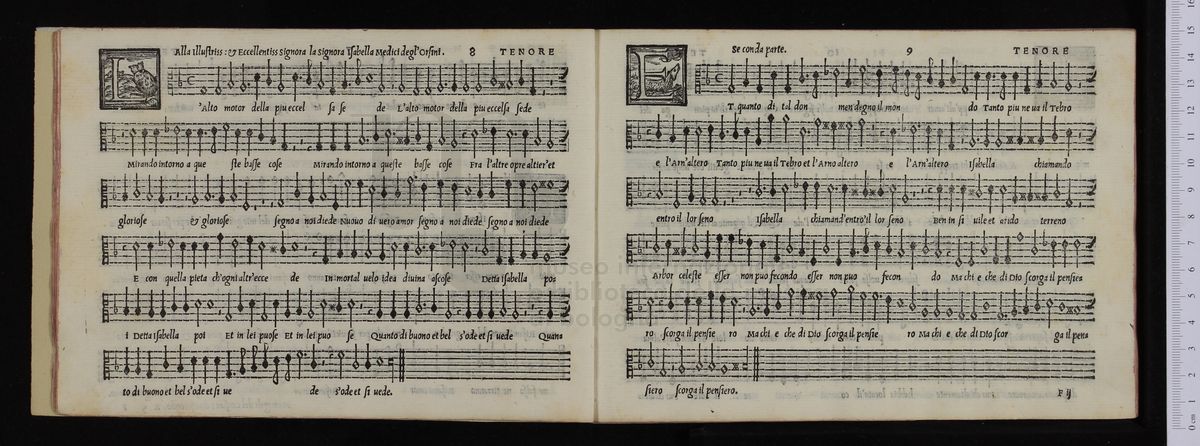 Alla Illustriss: & Eccellentiss Signora la Signora Isabella Medici degl'Orsini. 8 TENORE
L'Alto motor della piu eccel sa se de L'alto motor della piu eccelsa sede
Mirando intorno a que ste basse cose Mirando intorno a queste basse cose Fra l'altre opre altier'et
gloriose & gloriose segno a noi diede Nuovo di vero amor segno a noi diede segno a noi diede
E con quella pieta ch'ogni altr'ecce de In mortal uelo idea diuina ascose Detta Isabella poi
i Detta isabella poi Et in lei puose Et in lei puo se Quanto di buono et bel s'ode et si uede Quan
to di buono et bel s'ode et si ue de s'ode et si uede.
Seconda parte. 9 TENORE
T quanto di tal don men degno il mon do Tanto piu ne ua il Tebro
e l'Arn'altero Tanto piu ne ua il Tebro et l'Arno altero e l'Arn'altero Isabella chiamando
entro il lor seno Isabella chiamand'entro'il lor seno Ben in si uile et arido terreno
Arbor celeste esser non puo fecondo esser non puo fecon do Ma chi e che di Dio scorga il pensie
ro scorga il pensie ro Ma chi e che di Dio scorga il pensie ro Ma chi e che di Dio scor ga il pen
siero scorga il pensiero.
F ij